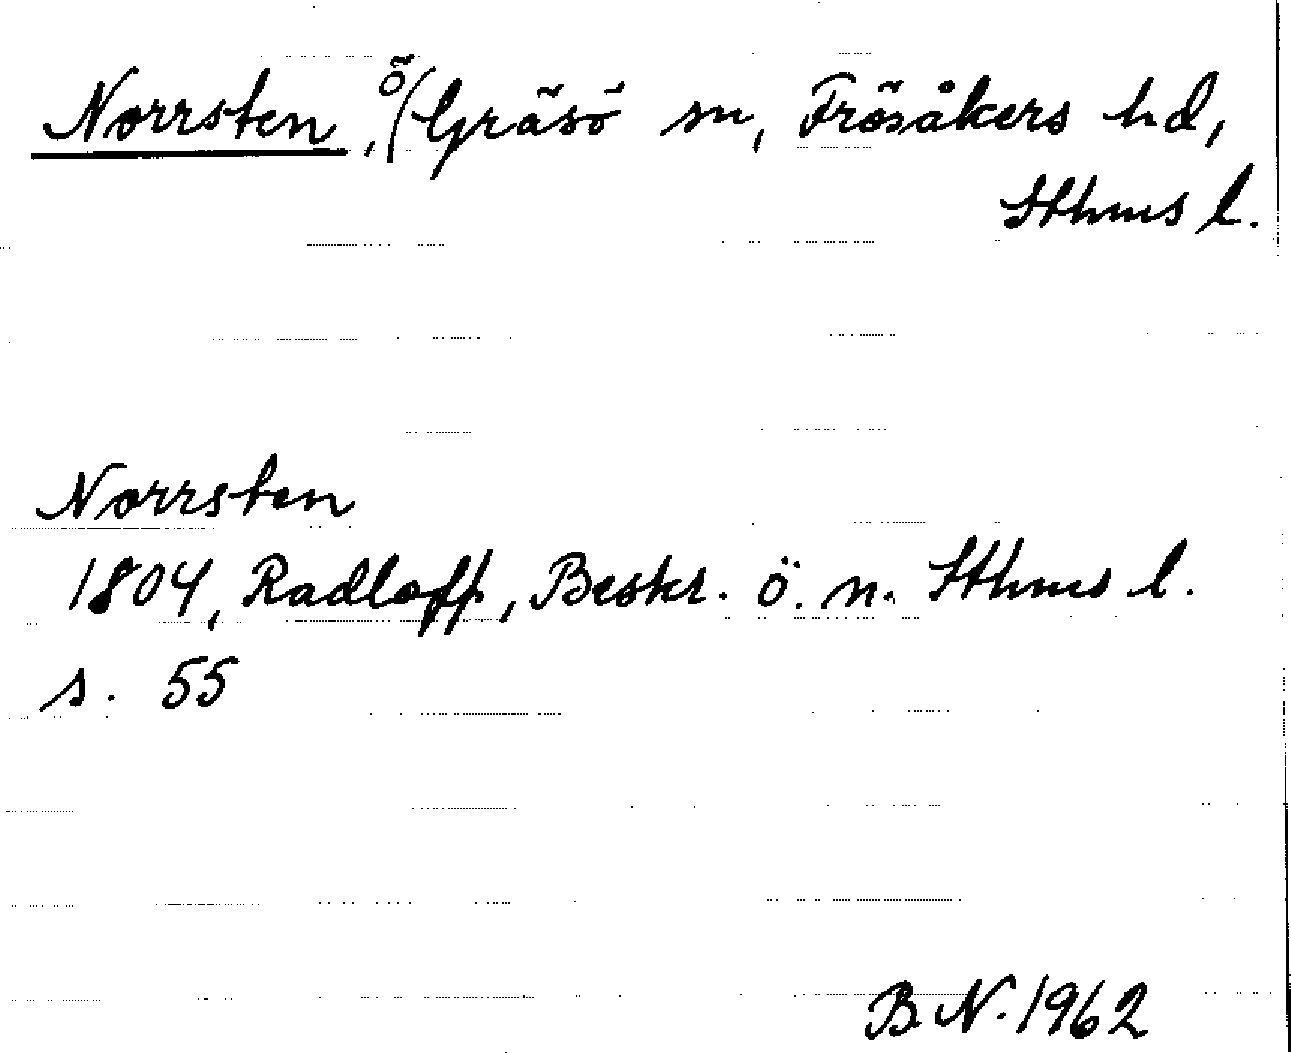 Norrsten, ö ( Gräsö sn, Frösåkers hd,
Sthms l.
Norrsten
1804, Radloff, Beskr. ö. n. Sthms l.
s. 55
B.N. 1962